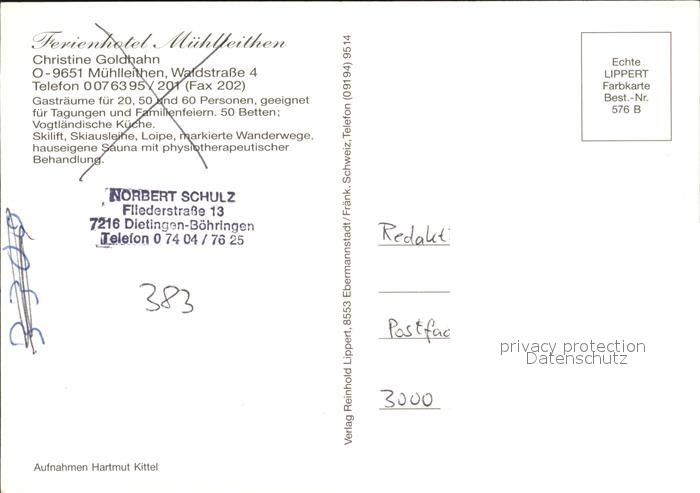 Ferienhotel Mühlleithen
Christine Goldhahn
O-9651 Mühlleithen, Waldstraße 4
Telefon 0076395/201 (Fax 202)
Gasträume für 20, 50 und 60 Personen, geeignet
für Tagungen und Familienfeiern. 50 Betten;
Vogtländische Küche.
Skilift, Skiausleihe, Loipe, markierte Wanderwege,
hauseigene Sauna mit physiotherapeutischer
Behandlung.
NORBERT SCHULZ
Fliederstraße 13
7216 Dietingen-Böhringen
Telefon 0 74 04 / 76 25
383
Aufnahmen Hartmut Kittel
Verlag Reinhold Lippert, 8553 Ebermannstadt/Fränk. Schweiz, Telefon (09194) 9514
Echte
LIPPERT
Farbkarte
Best.-Nr.
576 B
Redakt
Postfac
3000
privacy protection
Datenschutz